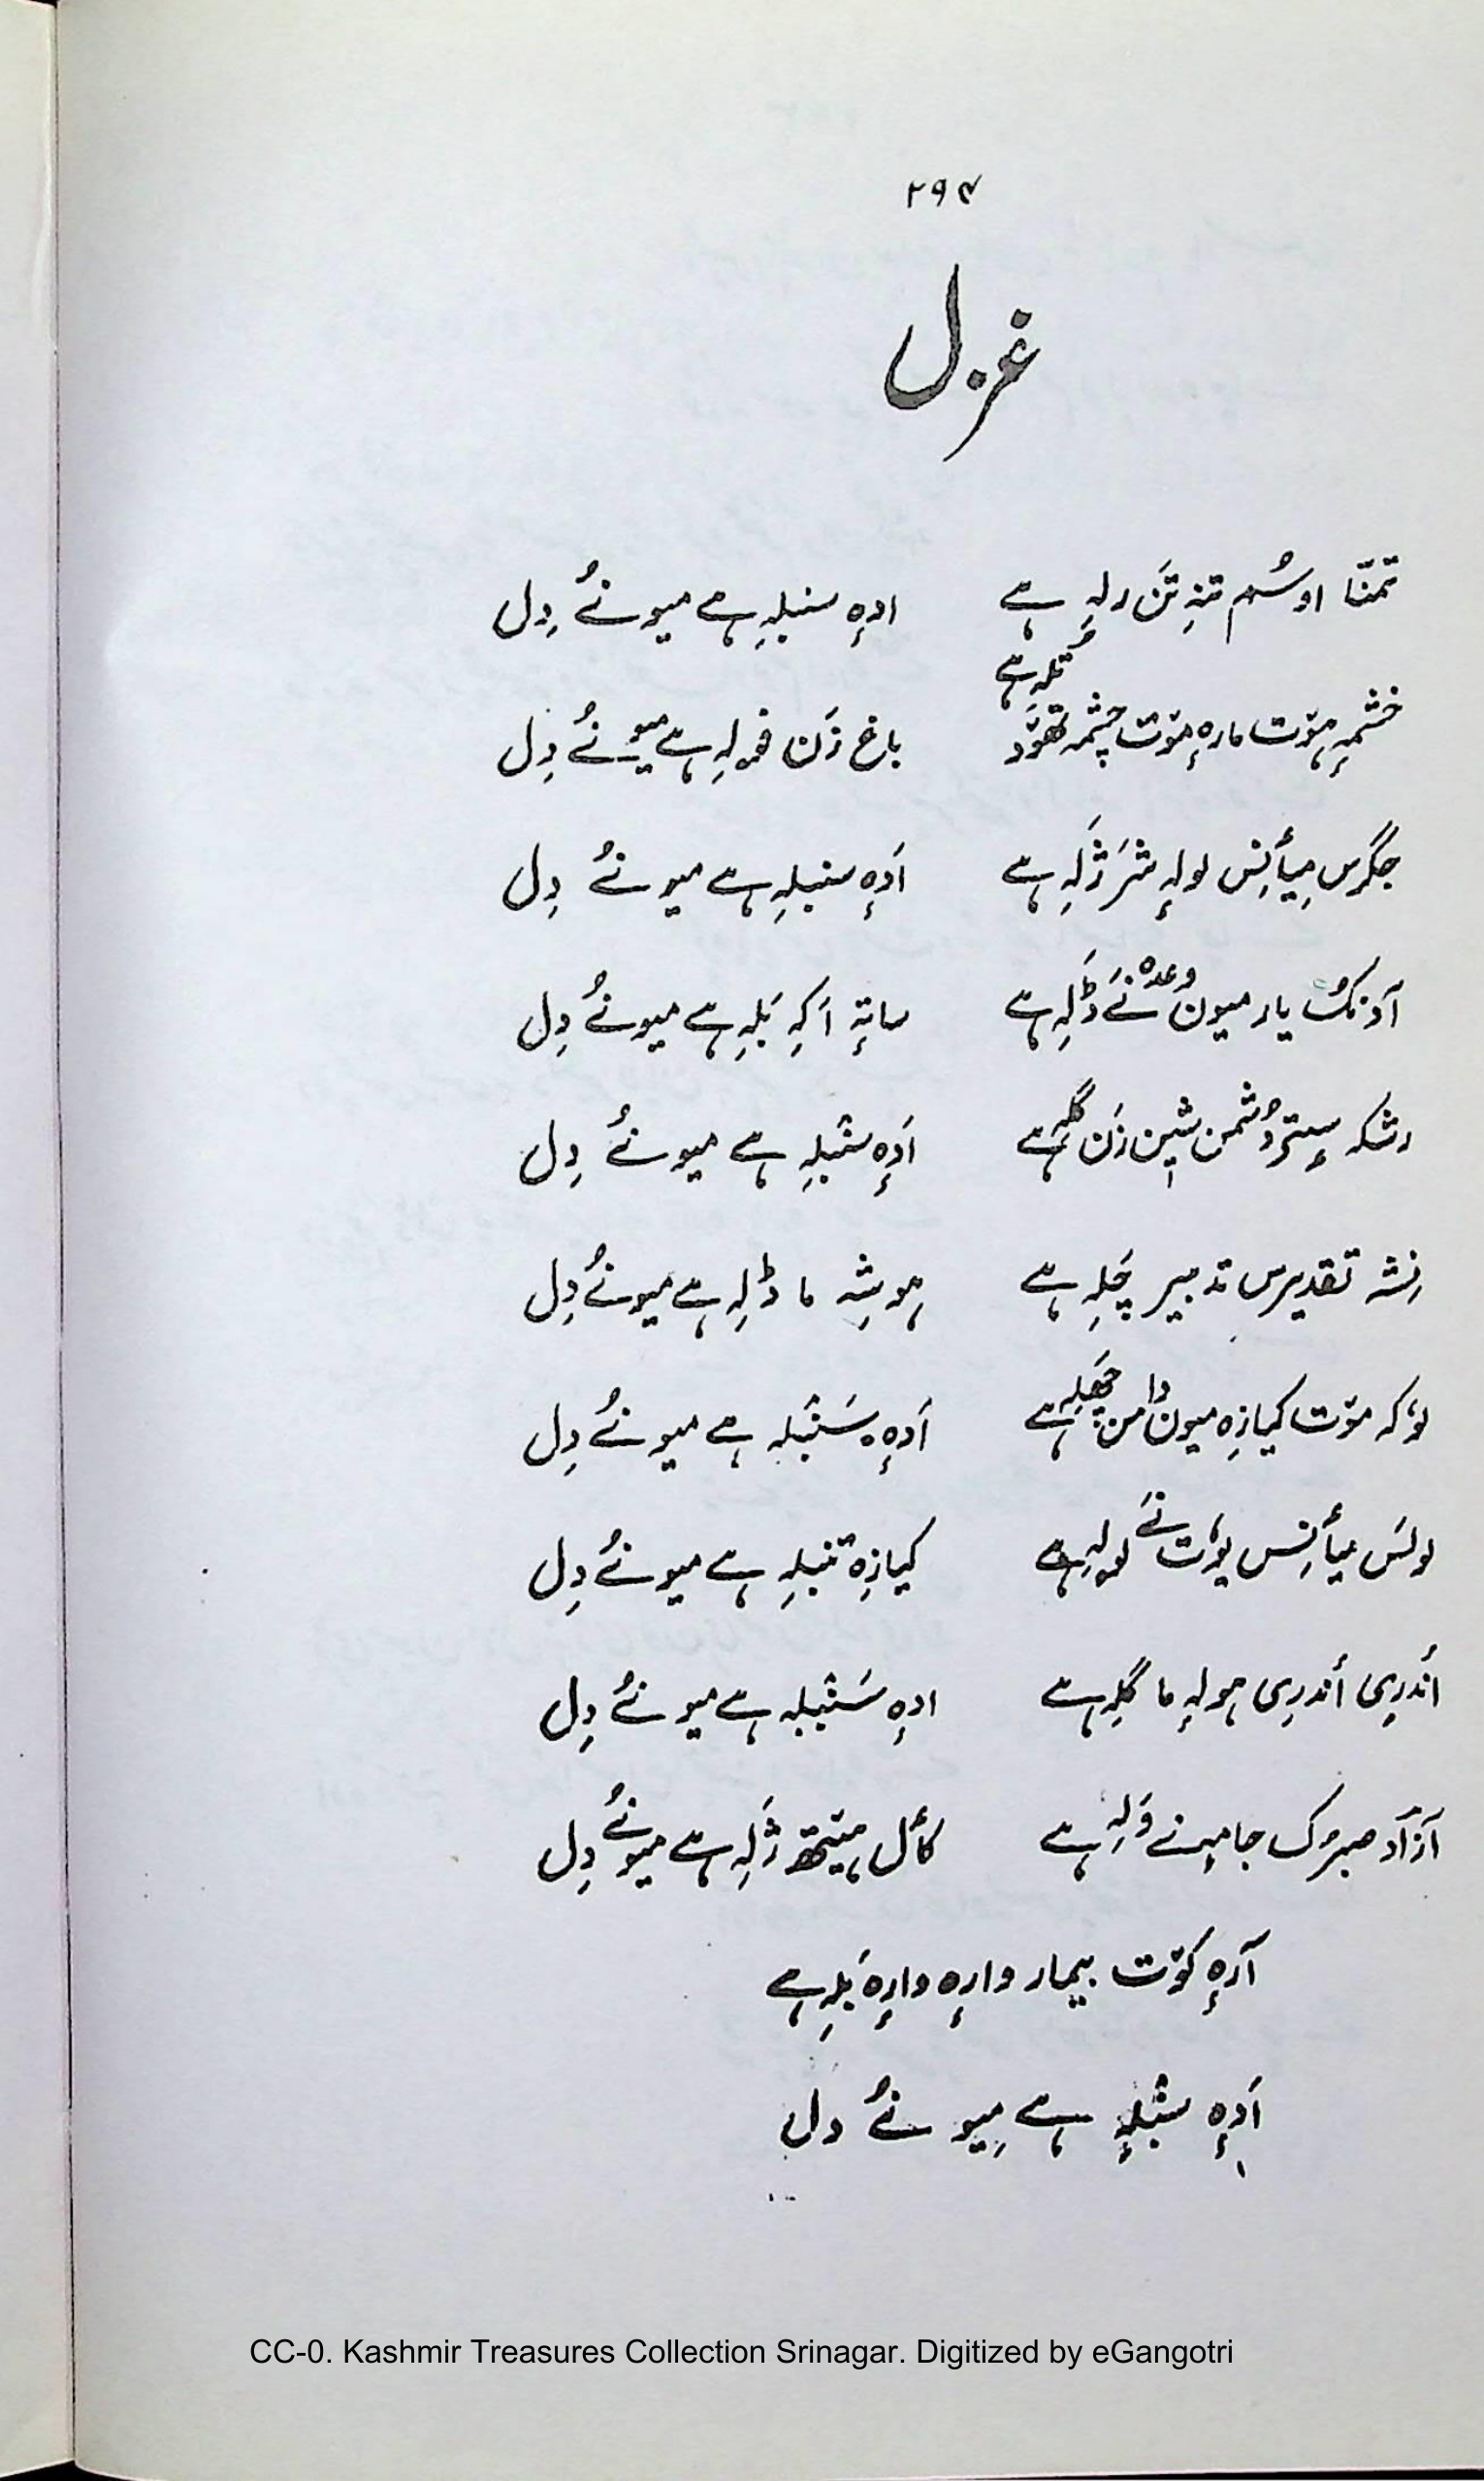 ۲۹۴
غزل
تمنّا اوسُم تنہِ تَن رلہِ ہے ادہٕ سنبلہِ ہے میونُے دِل
خشمہٕ ہوٚت مارہٕ موٚت چشمہ تھوٚد تُلہِ ہے باغ زَن فۄلہِ ہے میونُے دِل
جگرس میٲنِس لولہٕ شرَ ژَلہِ ہے اَدہٕ سنبلہِ ہے میونُے دِل
آدنکُ یار میون وعدہ نَے ڈَلہِ ہے ساتہٕ اَکہِ بَلہِ ہے میونُے دِل
رشکہ سٟتۍ دُشمن شین زَن گلہِ ہے اَدہٕ سنبلہِ ہے میونُے دِل
نِشہ تقدیرس تدبیر چَلہِ ہے ہوشہِ ما ڈلہِ ہے میونُے دِل
لوٗکہ موٚت کیازِہ میون دامن چھلہِ ہے اَدہٕ سَنبلہ ہے میونُے دِل
ولسَ میٲنِس یوٗت نَے لولہِ ہے کیازِہ تنبلہِ ہے میونُے دِل
أندرِی أندرِی ہولہٕ ما گلِہ ہے ادہٕ سَنبلہ ہے میونُے دِل
آزاد صبرُک جامہٕ نے وَلہِ ہے کٲل ہیٚتھ ژَلہِ ہے میونُے دِل
آرہٕ کوٚت بیمار وارہٕ وارہٕ بَلہِ ہے
اَدہٕ سنبلہٕ ہے میونُے دل
CC-0. Kashmir Treasures Collection Srinagar. Digitized by eGangotri